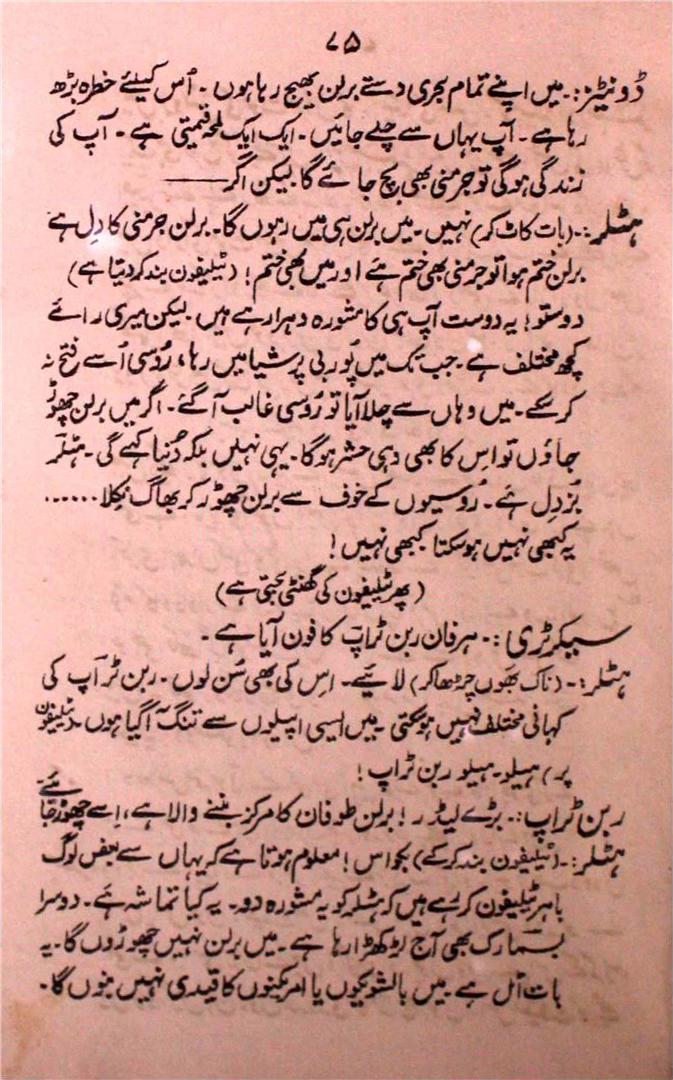 ۷۵
ڈونیٹز:۔ میں اپنے تمام بحری دستے برلن بھیج رہا ہوں ۔ اُس کیلئے خطرہ بڑھ
رہا ہے ۔ آپ یہاں سے چلے جائیں ۔ ایک ایک لمحہ قیمتی ہے ۔ آپ کی
زندگی ہوگی تو جرمنی بھی بچ جائے گا لیکن اگر ——
ہٹلر:۔ (بات کاٹ کر) نہیں ۔ میں برلن ہی میں رہوں گا۔ برلن جرمنی کا دِل ہے
برلن ختم ہوا تو جرمنی بھی ختم ہے اور میں بھی ختم! (ٹیلیفون بند کر دیتا ہے)
دوستو! یہ دوست آپ ہی کا مشورہ دہرا رہے ہیں لیکن میری رائے
کچھ مختلف ہے ۔ جب تک میں پُوربی پرشیا میں رہا، رُوسی اُسے فتح نہ
کر سکے ۔ میں وہاں سے چلا آیا تو رُوسی غالب آگئے ۔ اگر میں برلن چھوڑ
جاؤں تو اس کا بھی وہی حشر ہوگا۔ یہی نہیں بلکہ دُنیا کہے گی ۔ ہٹلر
بُزدِل ہے ۔ رُوسیوں کے خوف سے برلن چھوڑ کر بھاگ نِکلا ......
یہ کبھی نہیں ہو سکتا کبھی نہیں!
(پھر ٹیلیفون کی گھنٹی بجتی ہے)
سیکرٹری:۔ ہرفان ربن ٹراپ کا فون آیا ہے ۔
ہٹلر:۔ (ناک بھَوں چڑھا کر) لائیے ۔ اِس کی بھی سُن لوں ۔ ربن ٹراپ کی
کہانی مختلف نہیں ہو سکتی ۔ میں ایسی اپیلوں سے تنگ آگیا ہوں ۔ (ٹیلیفون
پر) ہیلو ۔ ہیلو ربن ٹراپ!
ربن ٹراپ:۔ بڑے لیڈر! برلن طوفان کا مرکز بننے والا ہے، اِسے چھوڑ جائیے
ہٹلر:۔ (ٹیلیفون بند کر کے) بکواس! معلوم ہوتا ہے کہ یہاں سے بعض لوگ
باہر ٹیلیفون کر رہے ہیں کہ ہٹلر کو یہ مشورہ دو ۔ یہ کیا تماشہ ہے ۔ دوسرا
بسمارک بھی آج لڑکھڑا رہا ہے ۔ میں برلن نہیں چھوڑوں گا ۔ یہ
بات اٹل ہے ۔ میں بالشویکوں یا امریکنوں کا قیدی نہیں بنوں گا ۔